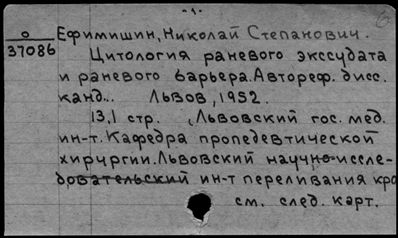 -1-
0 Ефимишин, Николай Степанович.
37086 Цитология раневого экссудата
и раневого барьера. Автореф. дисс.
канд... Львов, 1952.
13,1 стр. (Львовский гос. мед.
ин-т. Кафедра пропедевтической
хирургии. Львовский научно-иссле-
довательский ин-т переливания кро
см. след. карт.